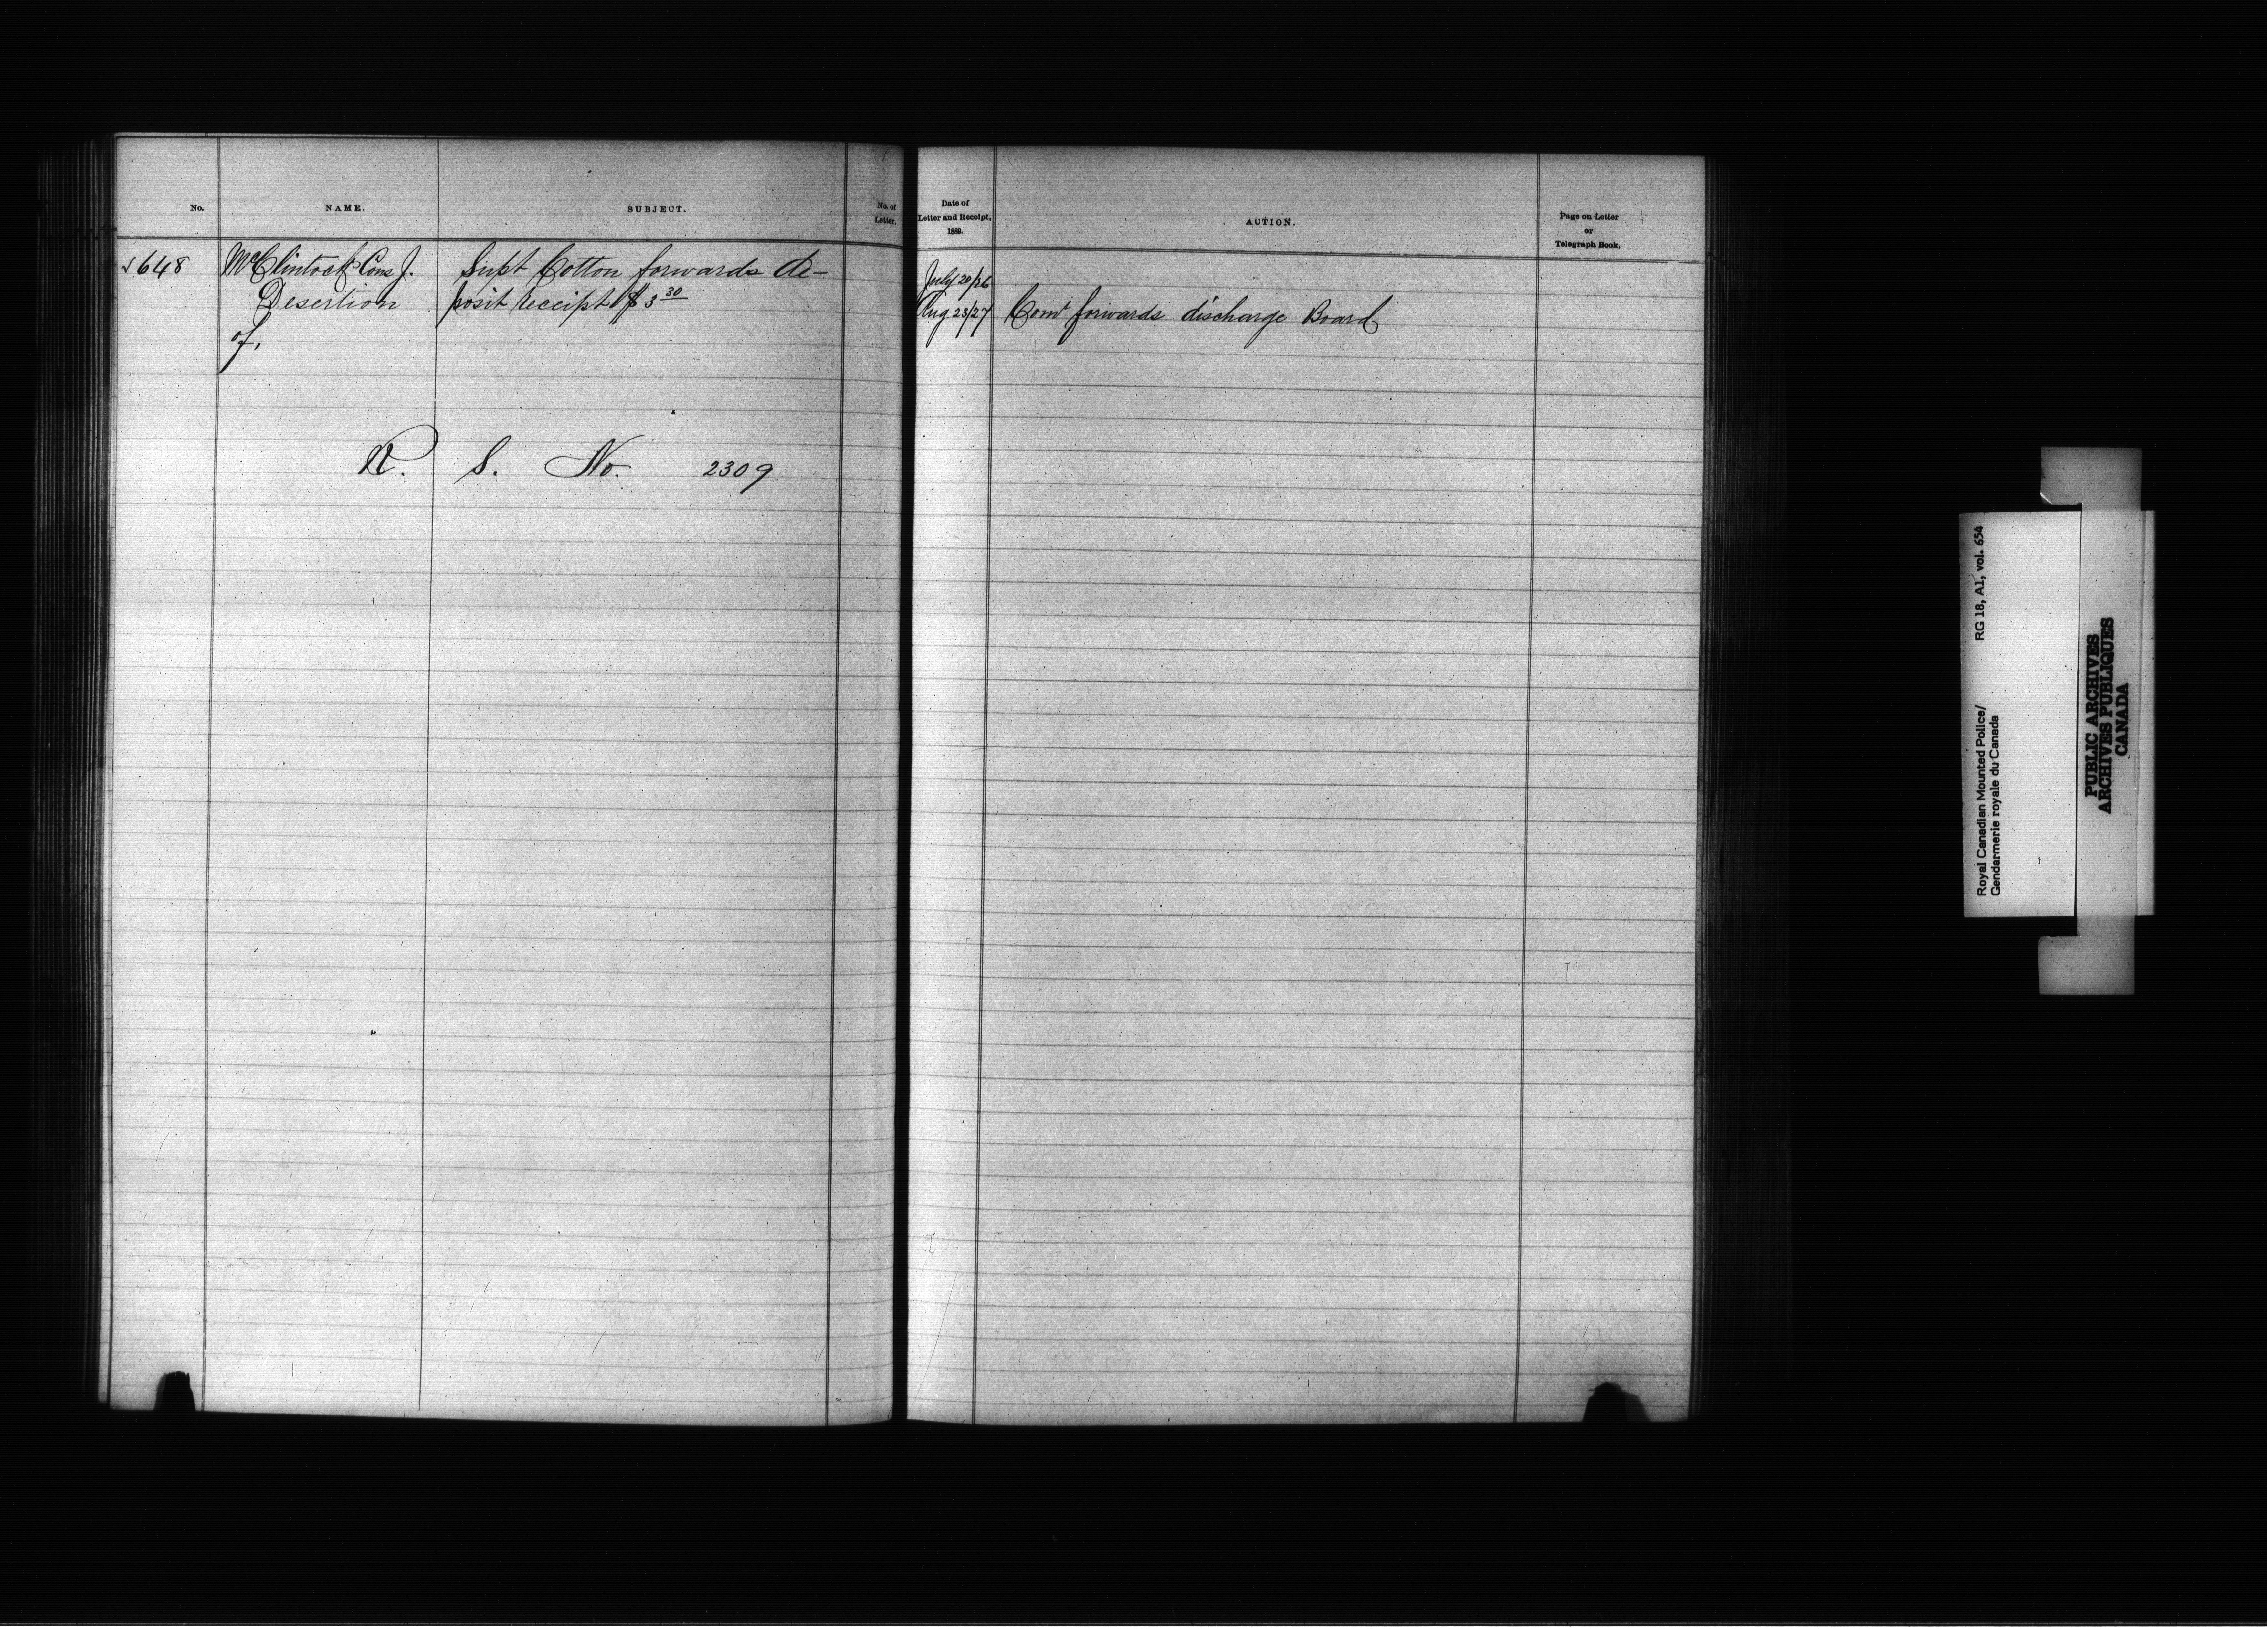 No.
NAME.
SUBJECT.
No. of
Letter.
Date of
Letter and Receipt,
1889.
ACTION.
Page on Letter
or
Telegraph Book.
√648
McClintock Cons J.
Desertion
of,
Supt Cotton forwards de-
posit receipt $3 30
R. S. No. 2309
July 20/26
Aug 23/27
Comr forwards discharge Board
Royal Canadian Mounted Police/
Gendarmerie royale du Canada
RG 18, A1, vol. 654
PUBLIC ARCHIVES
ARCHIVES PUBLIQUES
CANADA